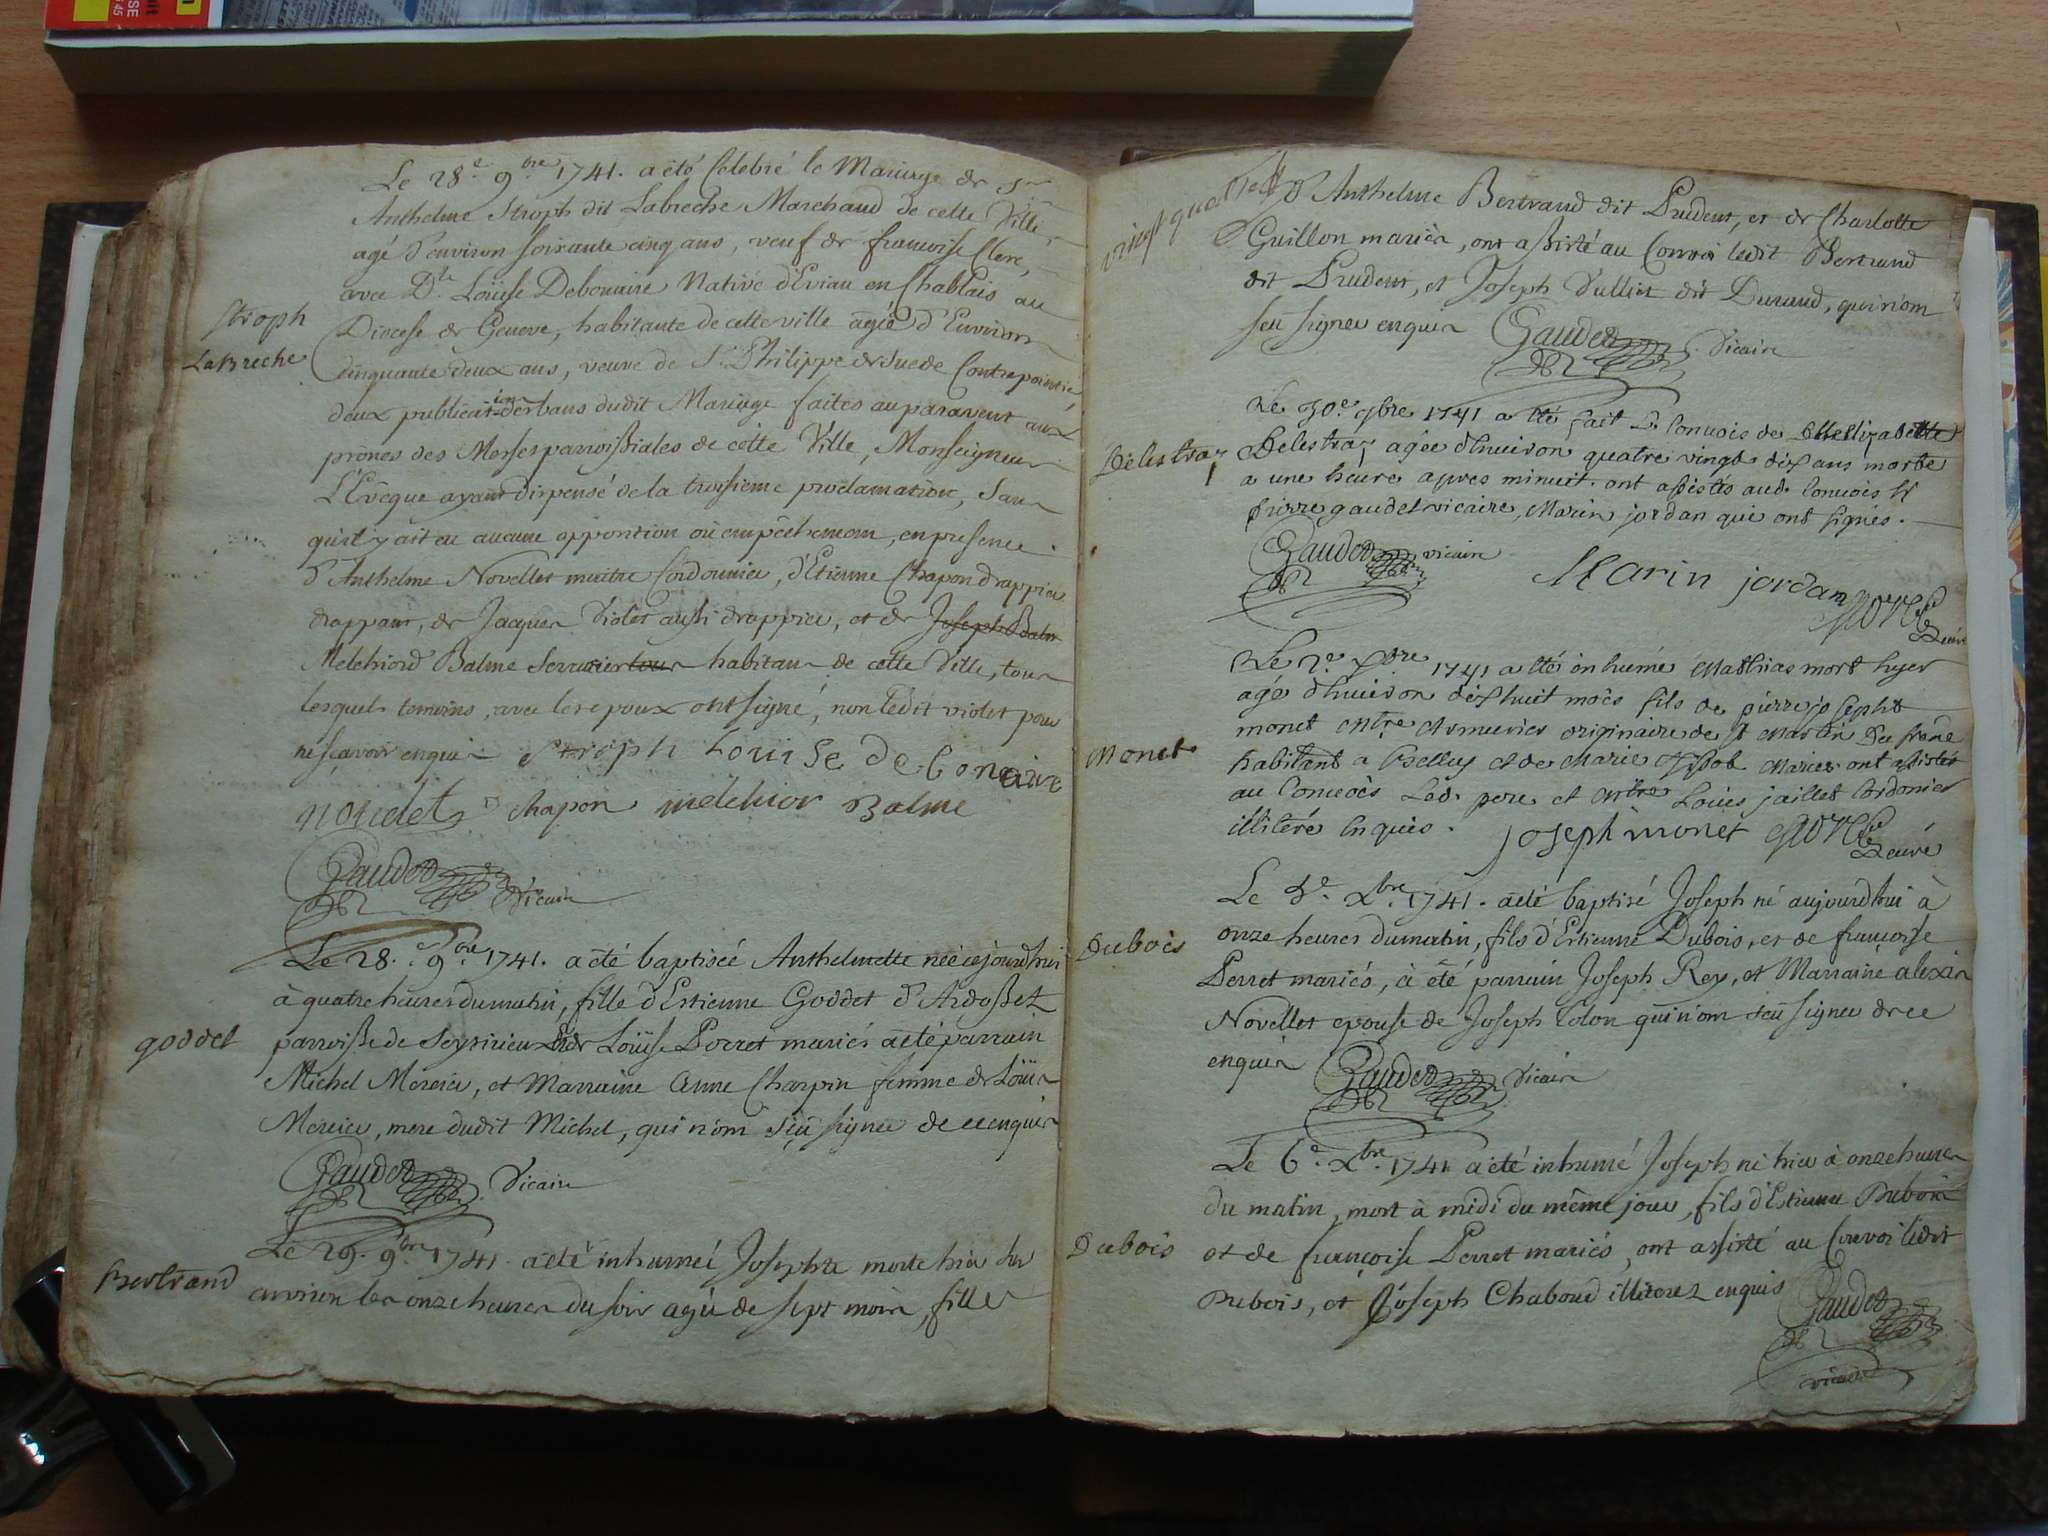 Le 28.e 9.bre 1741. a été Celebré le Mariage de Sr
Anthelme Stroph dit Labreche Marchand de cette Ville,
agé d'environ soixante cinq ans, veuf de françoise Clerc,
avec D.lle Loüise Debonaire Native d'Evian en Chablais au
Stroph
LaBreche
Diocese de Geneve, habitante de cette ville agée d'Environ
cinquante deux ans, veuve de Sr Philippe de Suede
deux publications de bans dudit Mariage faites auparavent aux
prônes des Messes parroissiales de cette Ville, Monseigneur
L'Evêque ayant dispensé de la troisieme proclamation, Sans
qu'il y ait eu aucune opposition ou empéchement, en presence
d'Anthelme Novellet maitre Cordonnier, d'Etienne Chapon drappier
drappant, de Jacques Violet aussi drappier, et de Joseph Balm
Melchiord Balme Serrurier tous habitans de cette Ville, tous
lesquels temoins, avec les epoux ont signé, non ledit violet pour
ne sçavoir enquis Stroph Loüise de bonaire
noudet chapon melchior Balme
Gaudet Vicaire
Le 28.e 9.bre 1741. a été baptisée Anthelmette née cejourd'hui
à quatre heures du matin, fille d'Estienne Goddet d'Ardosset
goddet
parroisse de Seysirieu et de Loüise Porret mariés a été parrain
Michel Mercier, et Marraine Anne Charpin femme de Loüis
Mercier, mere dudit Michel, qui n'ont sçu signer de ce enquis
Gaudet Vicaire
Le 29. 9.bre 1741. a été inhumée Josephte morte hier sur
Bertrand
environ les onze heures du soir agée de sept mois, fille
vingt quatre
d'Anthelme Bertrand dit Prudent, et de Charlotte
Guillon mariés, ont assisté au Convoi ledit Bertrand
dit Prudent, et Joseph Vulliet dit Durand, qui n'ont
seu signer enquis Gaudet Vicaire
Le 30.e 9bre 1741 a été fait Le Convois de Elizabette
Delestraz
Delestraz agée d'huiron quatre vingt dix ans morte
a une heure apres minuit. ont assistés aud. Convois Sr
pierre gaudet vicaire, Marin jordan qui ont signés.
Gaudet vicaire Marin jordan
Curé
Le 2.e Xbre 1741 a été inhumé Mathias mort hyer
agé d'huiron dixhuit mois fils de pierre josepht
monet Mtre Armurier originaire de St Martin du frêne
Monet
habitant a Belley et de Marie Mariés ont assistés
au Convoës Led. pere et Mtre Louis jaillet Cordonier
illiteré Enquis. joseph monet Curé
Le 5.e Xbre. 1741. a été baptisé Joseph né aujourdhui à
Dubois
onze heures du matin, fils d'Estienne Dubois, et de françoise
Perret mariés, à été parrain Joseph Rey, et Marraine alexis
Novellet epouse de Joseph Colon qui n'ont seu signer de ce
enquis Gaudet Vicaire
Le 6.e Xbre. 1741 a été inhumé Joseph né hier à onze heures
du matin, mort à midi du même jour, fils d'Estienne Dubois
Dubois
et de françoise Perret mariés, ont assisté au Convoi ledit
Dubois, et Joseph Chaboud illiterez enquis Gaudet
vicaire